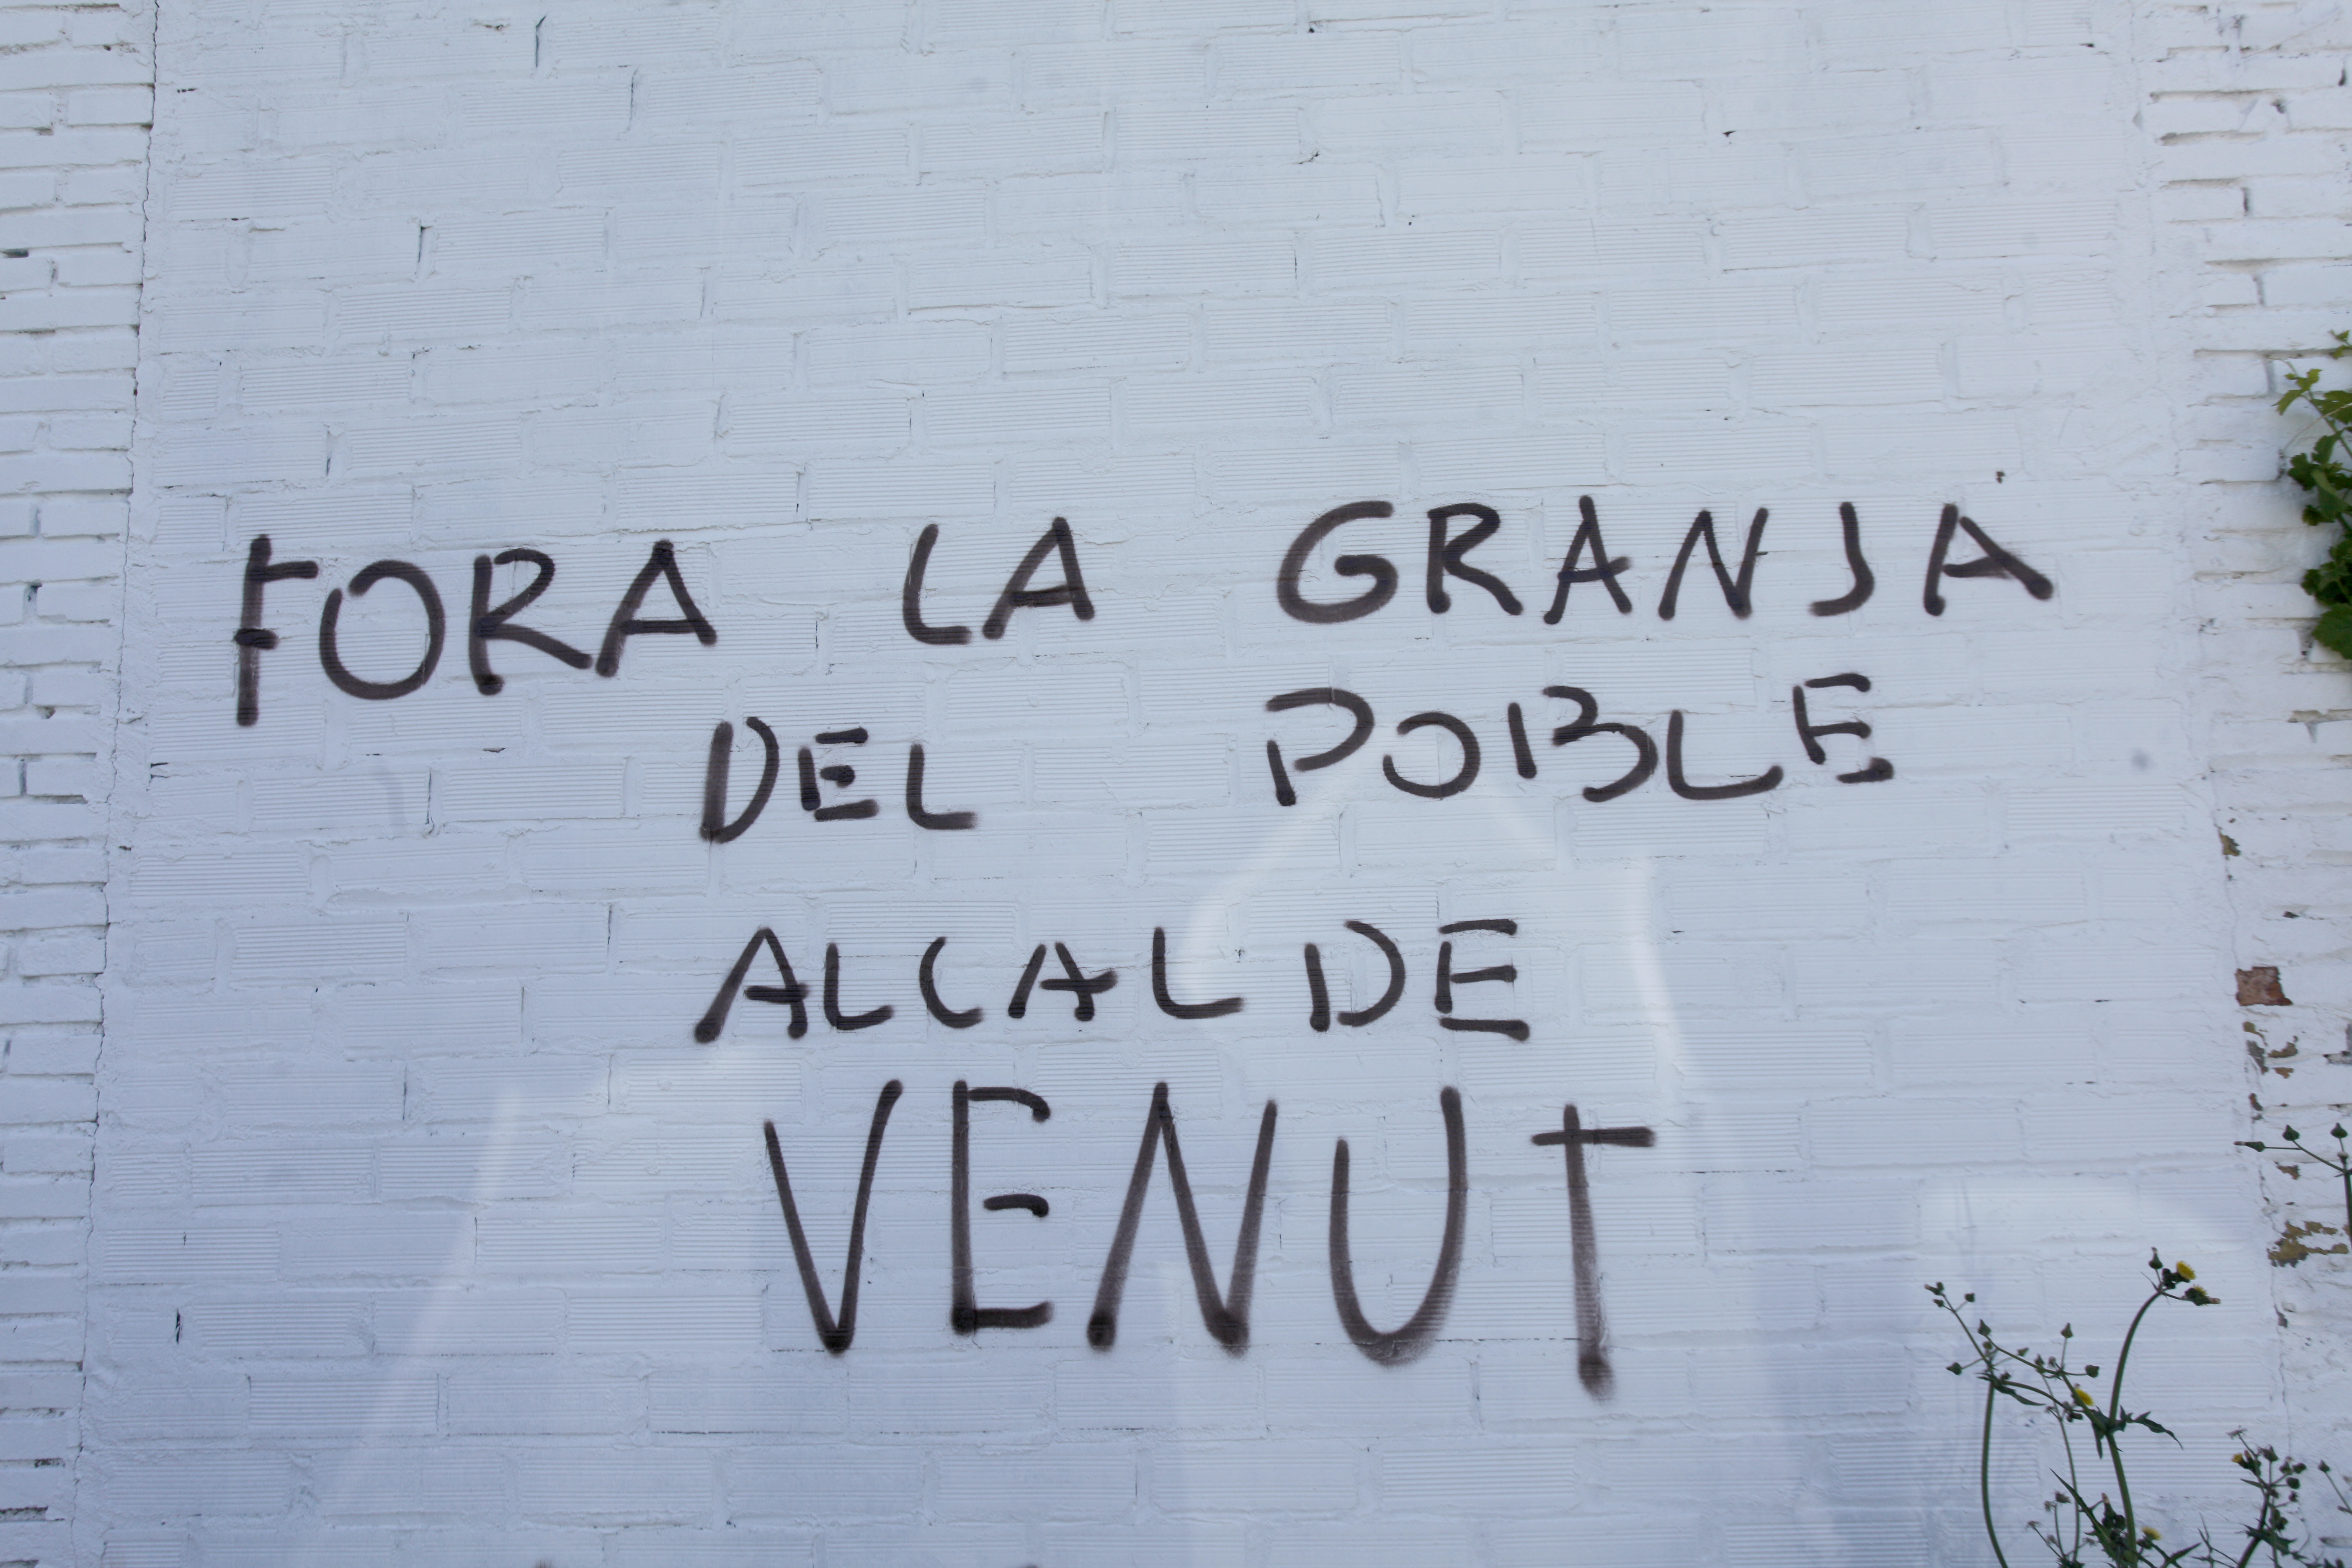 FORA LA GRANJA
DEL POBLE
ALCALDE
VENUT